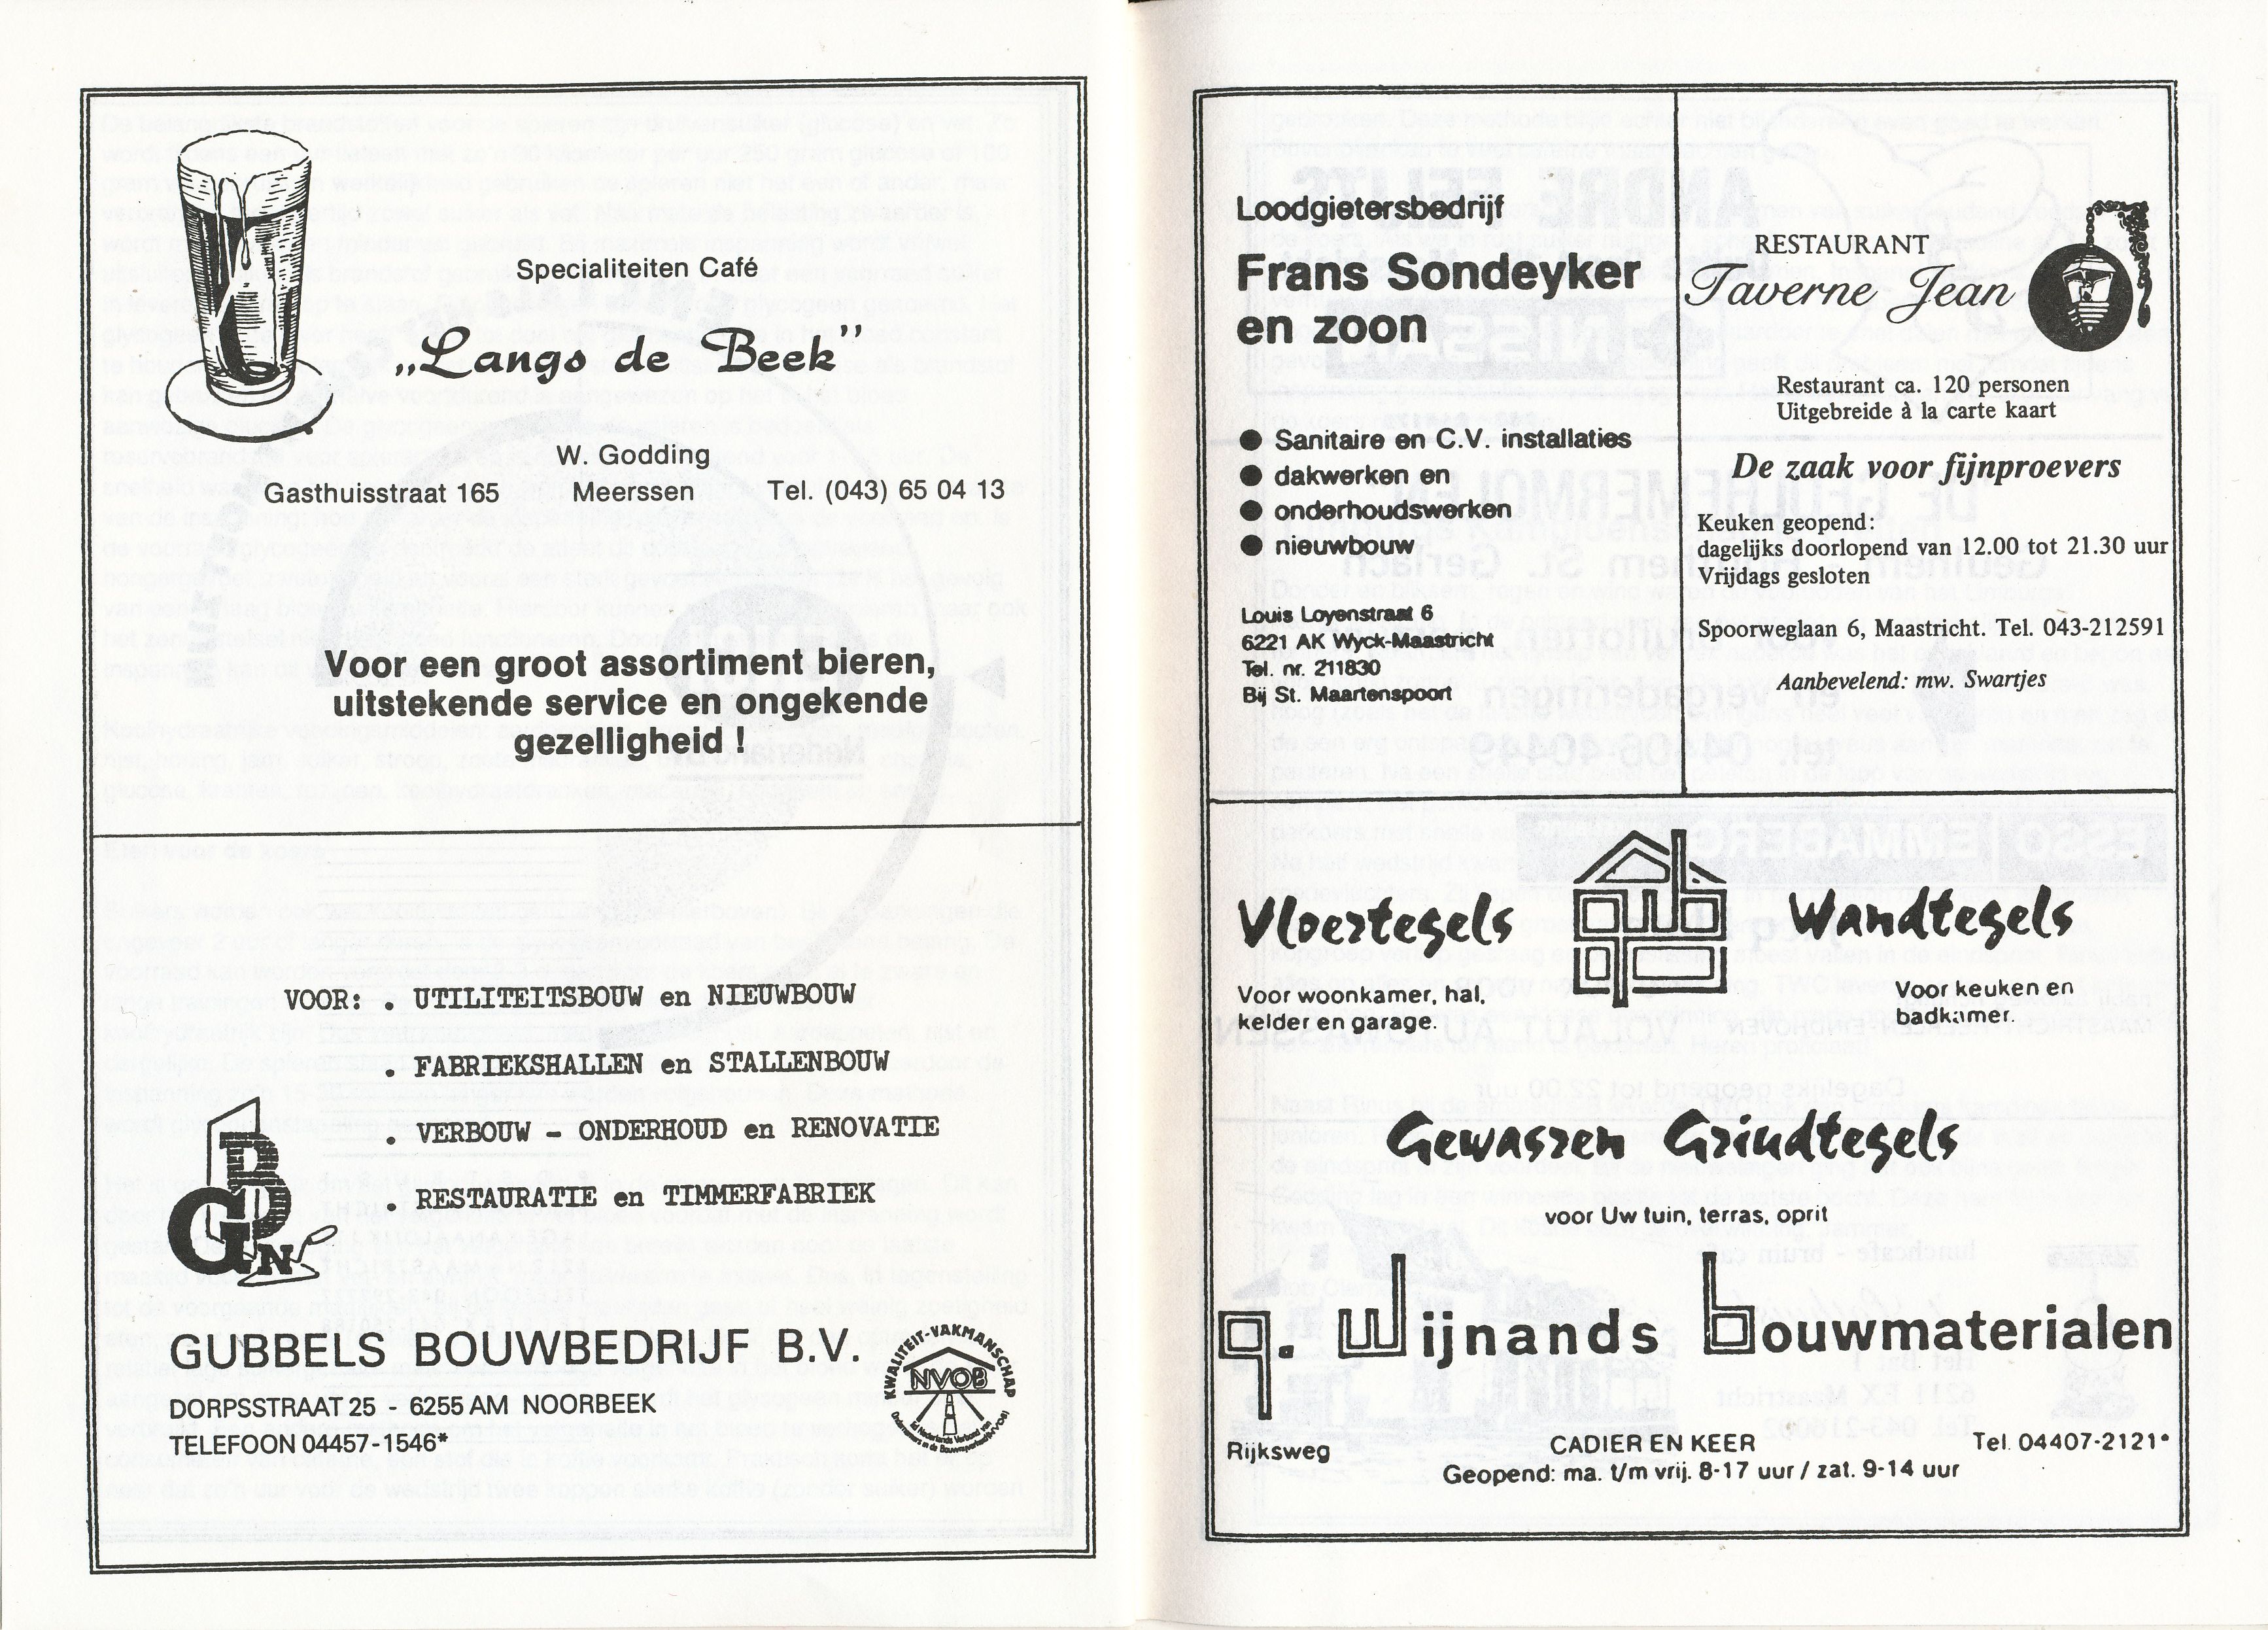 Specialiteiten Café
„Langs de Beek”
W. Godding
Gasthuisstraat 165 Meerssen Tel. (043) 65 04 13
Voor een groot assortiment bieren,
uitstekende service en ongekende
gezelligheid !
VOOR: . UTILITEITSBOUW en NIEUWBOUW
. FABRIEKSHALLEN en STALLENBOUW
. VERBOUW - ONDERHOUD en RENOVATIE
. RESTAURATIE en TIMMERFABRIEK
GUBBELS BOUWBEDRIJF B.V.
DORPSSTRAAT 25 - 6255 AM NOORBEEK
TELEFOON 04457-1546*
KWALITEIT-VAKMANSCHAP
NVOB
Loodgietersbedrijf
Frans Sondeyker
en zoon
● Sanitaire en C.V. installaties
● dakwerken en
● onderhoudswerken
● nieuwbouw
Louis Loyenstraat 6
6221 AK Wyck-Maastricht
Tel. nr. 211830
Bij St. Maartenspoort
RESTAURANT
Taverne Jean
Restaurant ca. 120 personen
Uitgebreide à la carte kaart
De zaak voor fijnproevers
Keuken geopend:
dagelijks doorlopend van 12.00 tot 21.30 uur
Vrijdags gesloten
Spoorweglaan 6, Maastricht. Tel. 043-212591
Aanbevelend: mw. Swartjes
Vloertegels
Voor woonkamer, hal,
kelder en garage.
qwb
Wandtegels
Voor keuken en
badkamer.
Gewassen Grindtegels
voor Uw tuin, terras, oprit
q. wijnands bouwmaterialen
Rijksweg CADIER EN KEER Tel. 04407-2121*
Geopend: ma. t/m vrij. 8-17 uur / zat. 9-14 uur